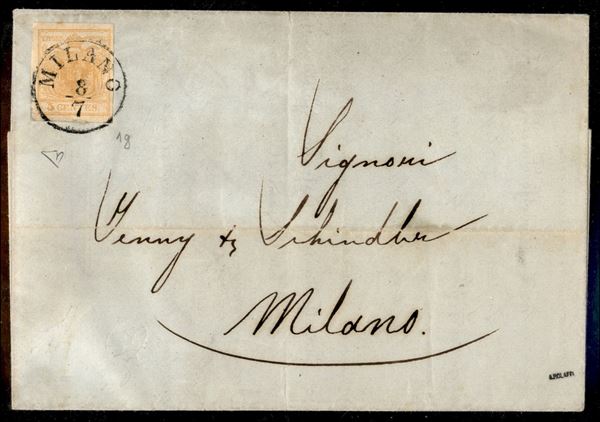 MILANO
8/7
5 CENTES
18
Signori
Jenny & Schindler
Milano.